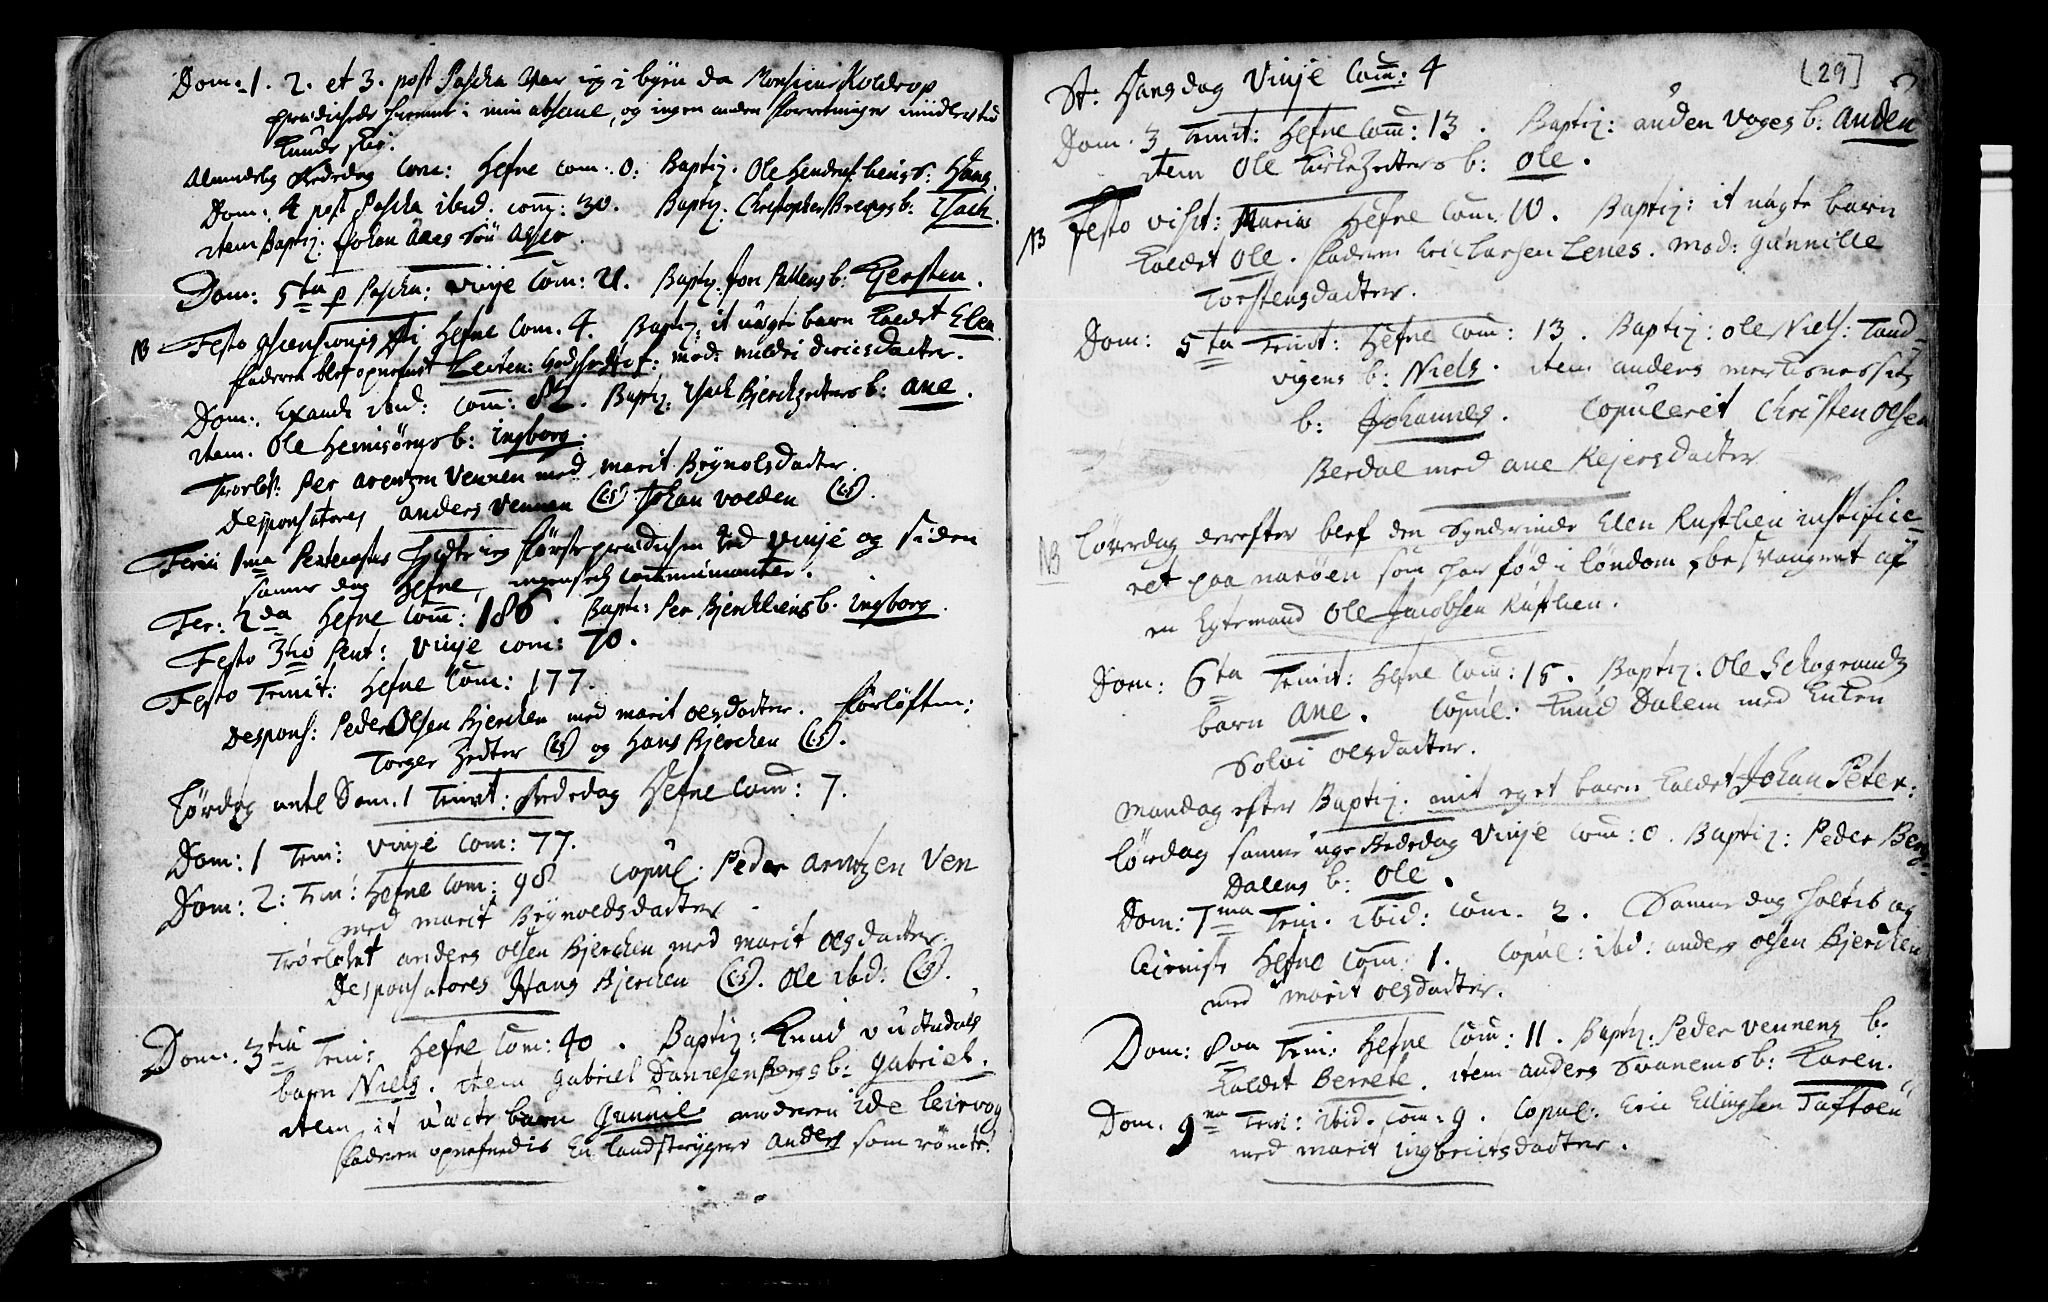 Dom: 1. 2. et 3. post Pascha Var ieg i byen da Monsieur Koldrop
prædichede hiemme i min absence, og ingen anden forretninger imidlertid
kunde skje.
Almindelig Bededag Hefne com: 0: Baptiz. Ole b: Hans.
Dom: 4 post Pascha ibid. com: 30. Baptiz: Christopher b: Isach.
item Baptiz. Johan Aaes
Dom: 5ta p Pascha: Vinje Com: 21. Baptiz: Jon b: Kersten.
NB Festo Ascensionis Xsti Hefne Com. 4 Baptiz: it uægte barn kaldet Elen
faderen blef opnefnt mod: Mildri dacter.
Dom: Exaudi ibid: Com: 82. Baptiz: Isach Bjerchzetters b: Ane.
item. Ole Hernisörens b: Ingborg.
Trorlof: Per Arentzen Vennen med Marit Brynolsdatter.
Desponsatores Anders Vennen (LS) Johan Volden (LS).
Feria 1ma Pentecostes ieg förste prædichen ved Vinje og siden
samme dag Hefne, ingensteds communicanter.
Fer: 2da Hefne Com: 186. Bapti: Per Bjerchliens b. Ingborg.
Festo 3tio Pent: Vinje com: 70.
Festo Trinit: Hefne Com: 177.
Despons: Peder Olsen Bjerchen med Marit Olsdatter. Forlöften:
Torger Zedter (LS) og Hans Bjerchen (LS).
Lördag ante Dom. 1 Trinit: Bededag Hefne Com: 7.
Dom: 1 Trin: Vinje Com: 77.
Dom: 2: Trin: Hefne Com: 98 Copul: Peder Arentzen Ven
med Marit Brynoldsdatter.
Trorlofvet Anders Olsen Bjerchen med Marit Olsdatter.
Desponsatores Hans Bjerchen (LS). Ole ibid: (LS).
Dom: 3tia Trin: Hefne Com: 40. Baptiz: Knud
barn Niels. item Gabriel b: Gabriel.
item it uæcte barn Gunnil moderen Ide Leirvog
faderen opnefnedis En landstryger Anders som römte.
[29]
St: Hansdag Vinje Com: 4
Dom. 3 Trinit: Hefne Com: 13. Baptiz: Anden Voges b: Anden
item Ole Kirkezetters b: Ole.
NB Festo visit: Mariæ Hefne Com: 10. Baptiz: it uægte barn
kaldet Ole. faderen Eric Larsen Lenes. mod: Gunnille
Torstensdatter.
Dom: 5ta Trinit: Hefne Com: 13. Baptiz: Ole Niels: Tand-
vigens b: Niels. item Anders
b: Johannes. Copuleret Christen Olsen
Berdal med Ane Rejersdatter
NB Löverdag derefter blef den Synderinde Elen Rustlien justifice
ret paa Naröen som har fød i löndom, besvangret af
en Egtemand Ole Jacobsen Rustlien.
Dom: 6ta Trinit: Hefne Com: 15. Baptiz. Ole Schogrands
barn Ane. Copul: Knud Dalem med Enken
Solvi Olsdatter.
Mandag efter Baptiz. mit eget barn kaldet Johan Peter:
lördag samme uge Bededag Vinje Com: 0. Baptiz: Peder Berg-
Dalens b: Ole.
Dom: 7ma Trin. ibid: Com. 2. Samme dag holtes og
Hefne Com: 1. Copul: ibid: Anders Olsen Bjerchen
med Marit Olsdatter.
Dom: 8va Trin: Hefne Com: 11. Baptiz: Peder Vennens b.
kaldet Berrete. item Anders Svanems b: Karen.
Dom. 9na Trin: ibid. Com: 9. Copul: Eric Ellingsen Taftöen
med Marit Ingbricsdatter.